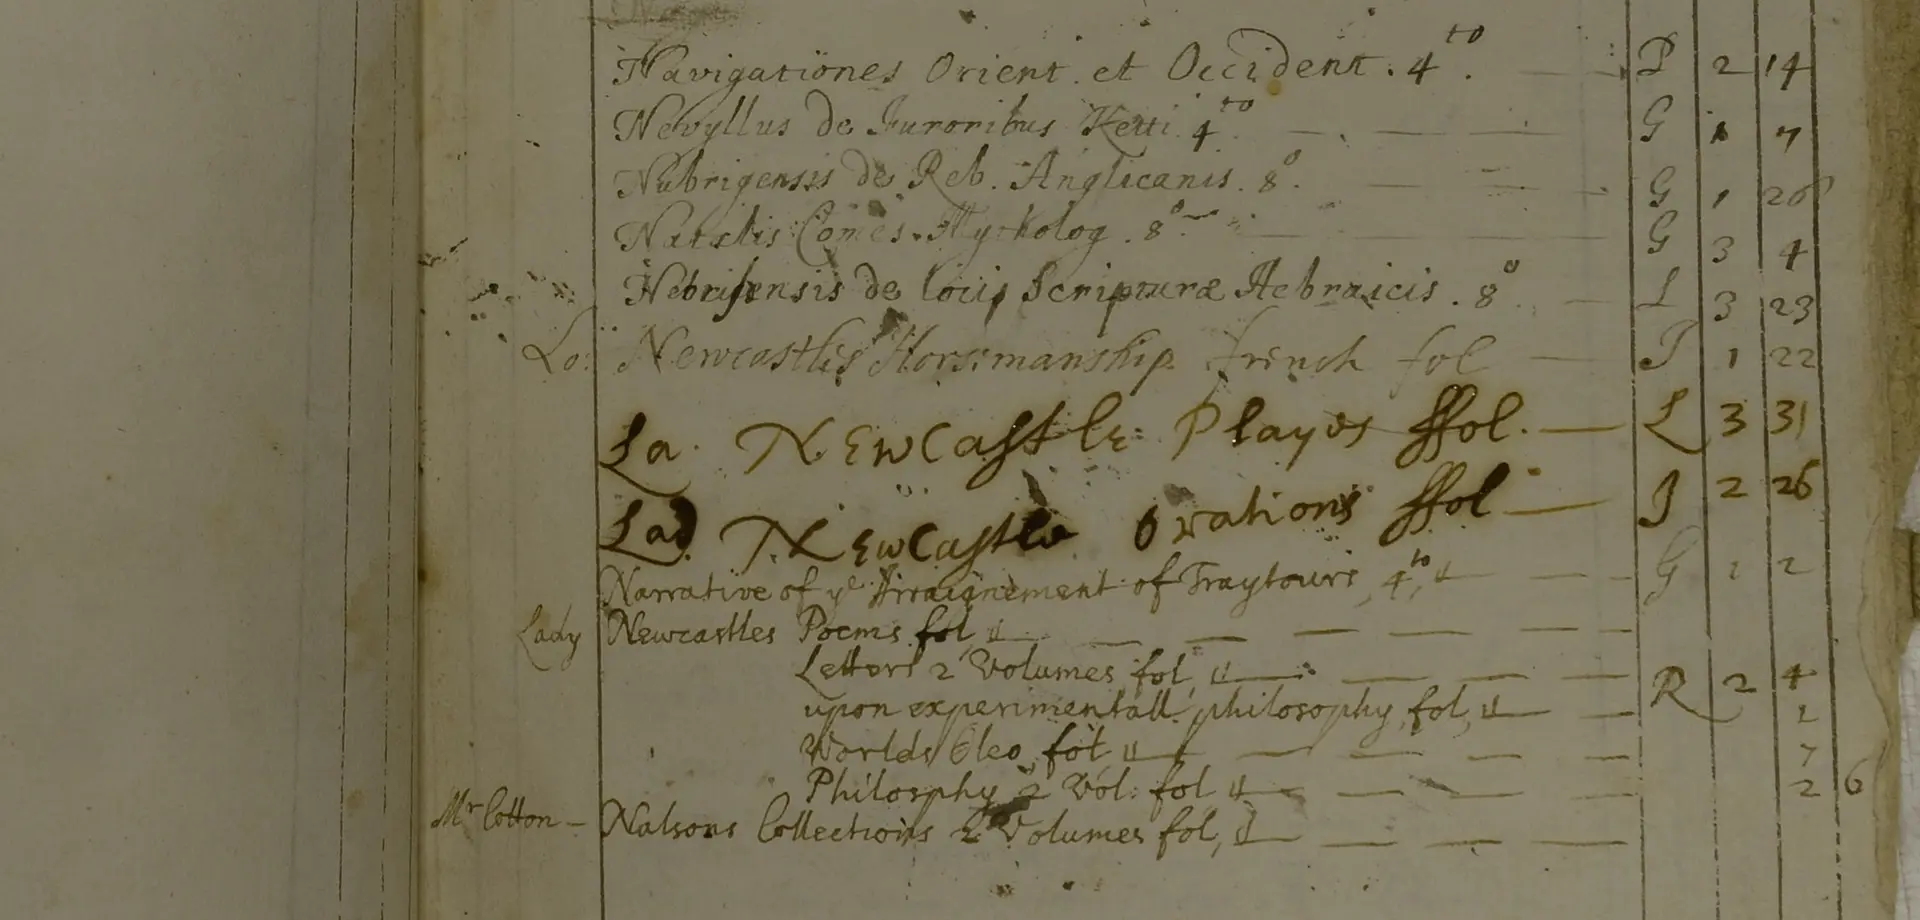 Navigationes Orient. et Occident. 4to. P 2 14
Nevyllus de Furoribus Ketti 4to. G 1 7
Nubrigensis de Reb. Anglicanis. 8o. G 1 26
Natalis Comes. Mytholog. 8o G 3 4
Nebrissensis de locis Scripturæ Hebraicis. 8o L 3 23
Lo: Newcastles Horsmanship french fol I 1 22
La. Newcastle: Playes ffol. L 3 31
Lad Newcastle Orations ffol I 2 26
Narrative of ye Arraignement of Traytours, 4to, G 1 2
Lady Newcastles Poems fol,
Letters 2 Volumes fol, R 2 4
upon experimentall philosophy, fol, 1
Worlds Oleo, fol 7
Philosphy 2 Vol: fol 2 6
Mr Cotton – Nalsons Collections 2 Volumes fol,